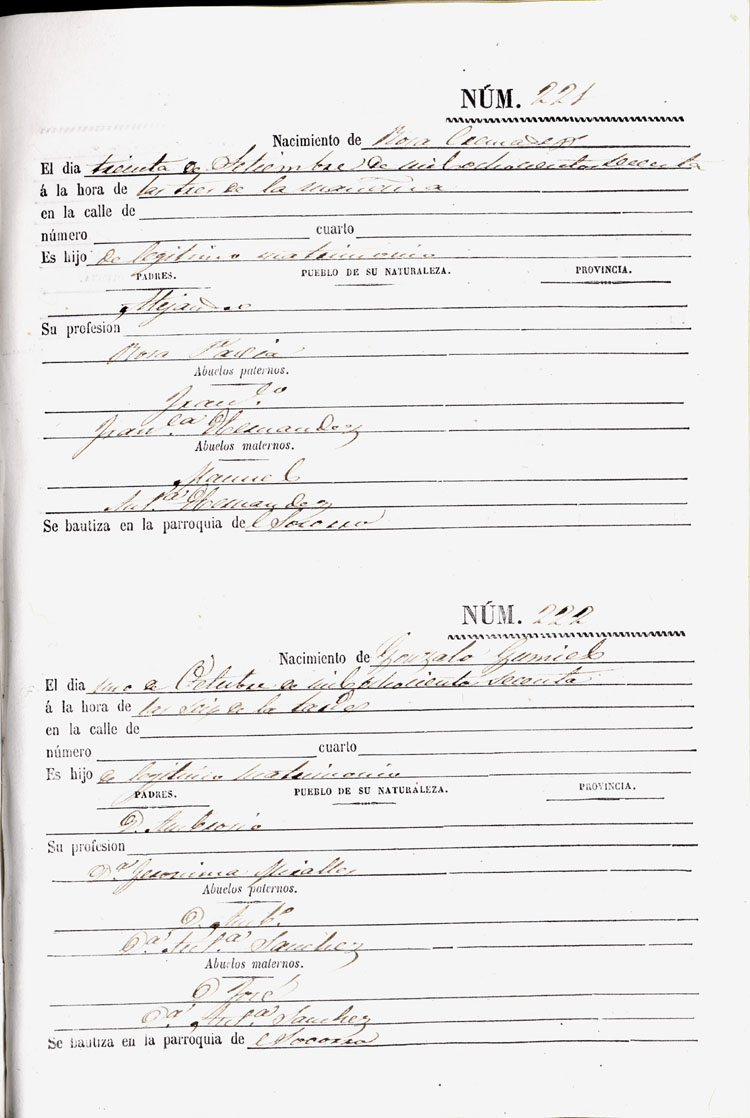 NÚM. 221
Nacimiento de Rosa Cremades
El dia treinta de Setiembre de mil ochocientos secenta
á la hora de las tres de la mañana
en la calle de
número cuarto
Es hijo de legitimo matrimonio
PADRES. PUEBLO DE SU NATURALEZA. PROVINCIA.
Alejandro
Su profesion
Rosa
Abuelos paternos.
Fran.co
Fran.ca Hernandez
Abuelos maternos.
Manuel
Ant.a Hernandez
Se bautiza en la parroquia de el Socorro
NÚM. 222
Nacimiento de Gonzalo Gumiel
El dia uno de Octubre de mil ochociento secenta
á la hora de las seis de la tarde
en la calle de
número cuarto
Es hijo de legitimo matrimonio
PADRES. PUEBLO DE SU NATURALEZA. PROVINCIA.
D. Ambrosio
Su profesion
D.a Geronima Miralles
Abuelos paternos.
D. Amb.o
D.a Ant.a Sanchez
Abuelos maternos.
D José
D.a Ant.a Sanchez
Se bautiza en la parroquia de el Socorro